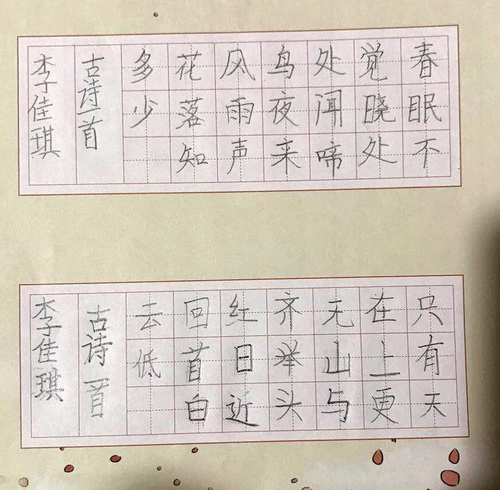 春眠不
觉晓处
处闻啼
鸟夜来
风雨声
花落知
多少
古诗一首
李佳琪
只有天
在上更
无山与
齐举头
红日近
回首白
云低
古诗一首
李佳琪